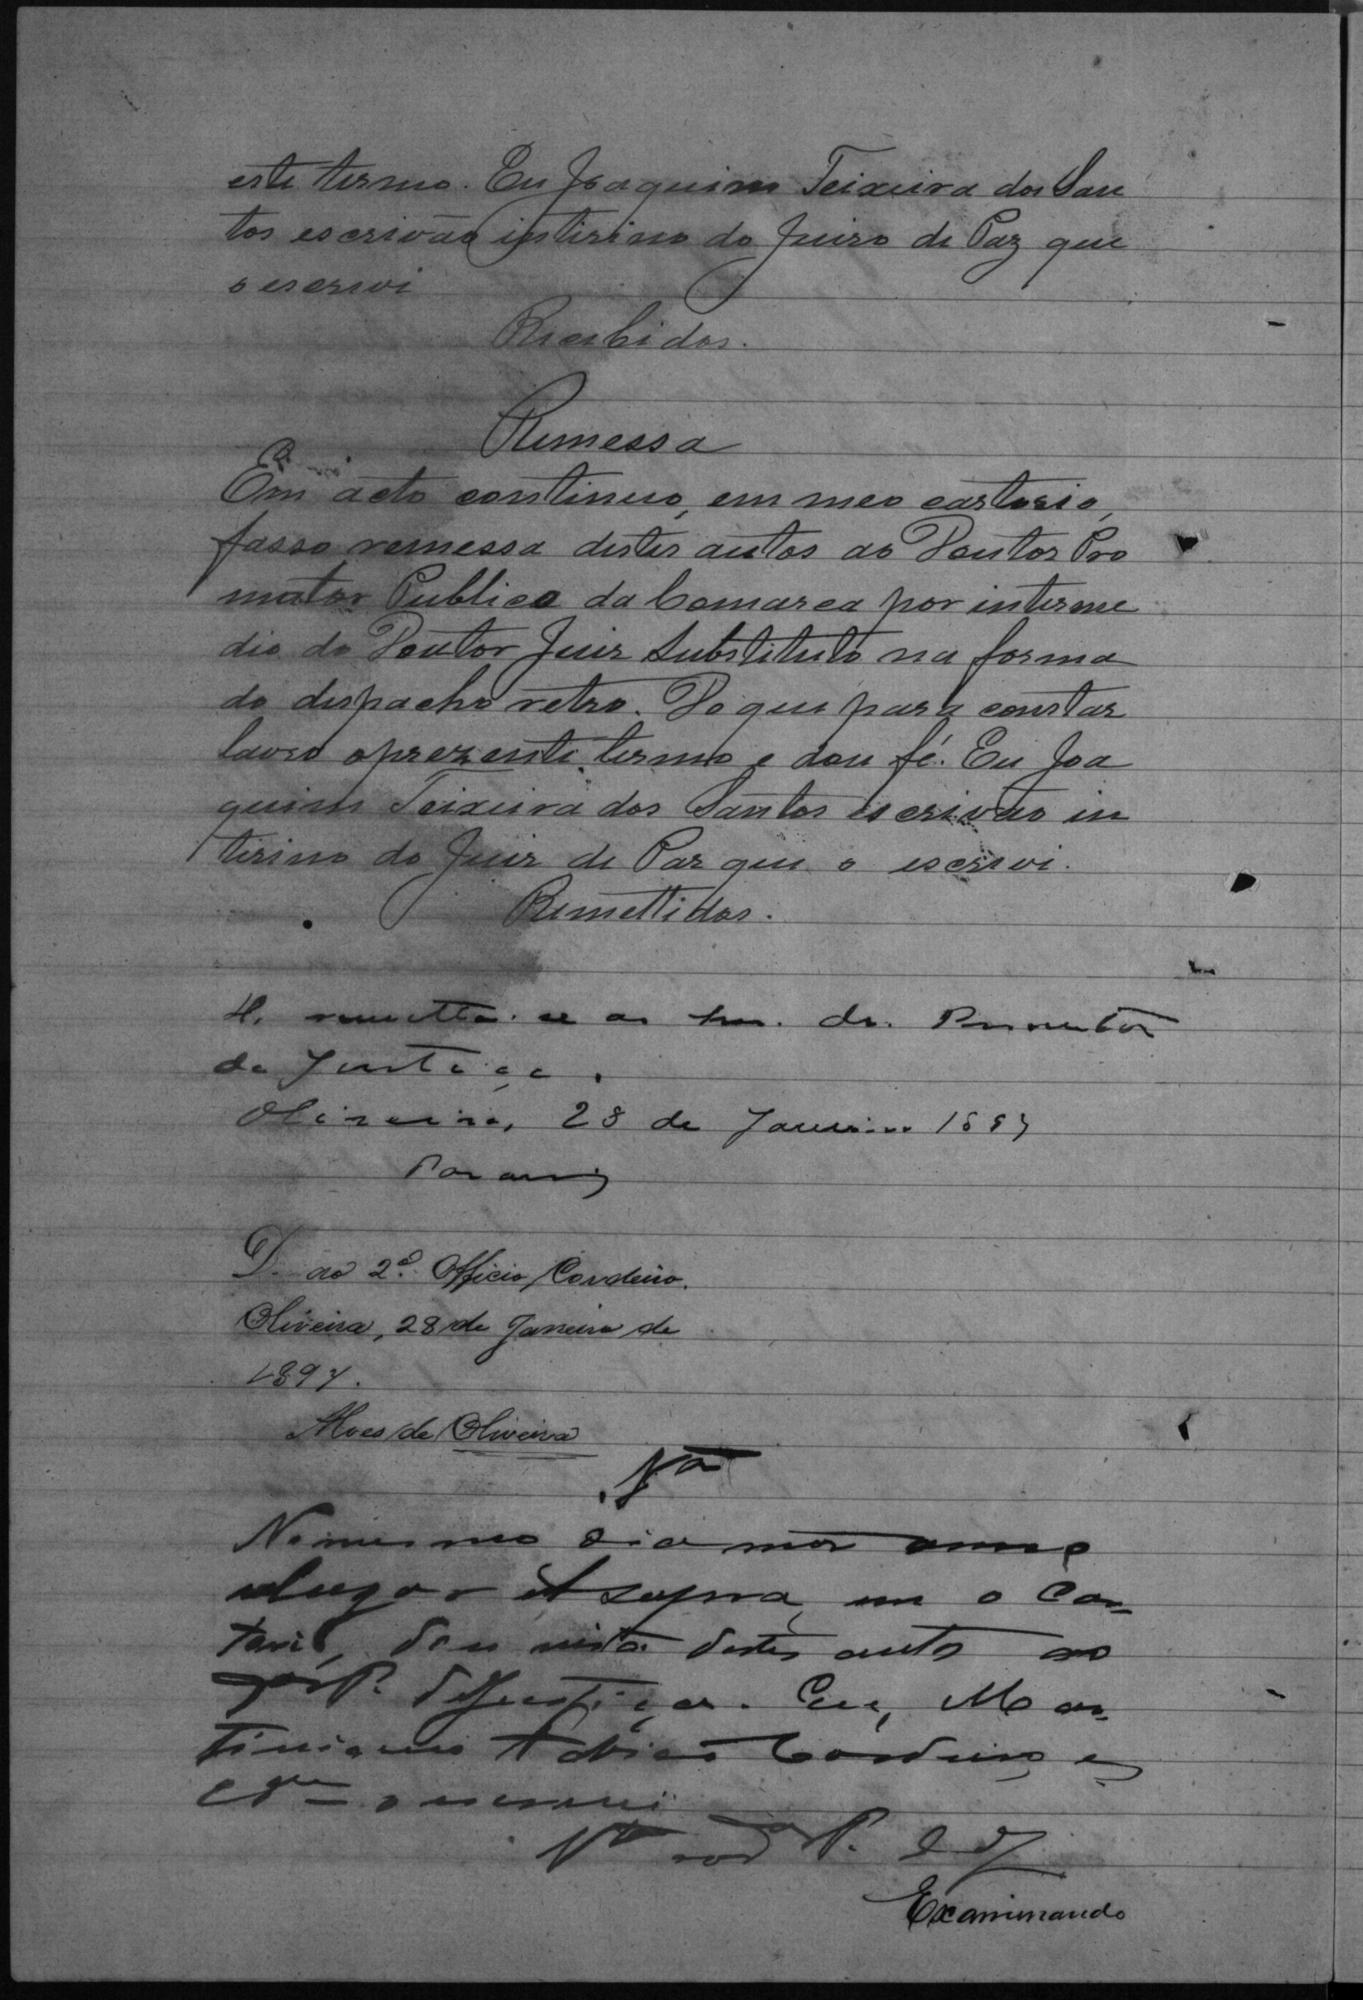 este termo. Eu Joaquim Teixeira dos San
tos escrivão interino do Juiso de Paz que
o escrevi
Recebidos.
Remessa
Em acto continuo, em meo cartorio,
fasso remessa destes autos ao Doutor Pro
motor Publico da Comarca por interme
dio do Doutor Juiz Substituto na forma
do despacho retro. Do que para constar
lavro o prezente termo e dou fé. Eu Joa
quim Teixeira dos Santos escrivão in
terino do Juiz de Paz que o escrevi.
Remettidos.
remetta-se ao dr. Promotor
de Justiça.
Oliveira, 28 de Janeiro 1897
D. ao 2º Officio, Cordeiro.
Oliveira, 28 de Janeiro de
1897.
Alves de Oliveira
Vta
No mesmo dia mez anno
e lugar supra, em o Car-
torio, dou vista destes autos ao
Dor P. de Justiça. Eu, Mar-
tiniano Cordeiro, es
o escrevi
Vta ao Dor P. de J
Examinando